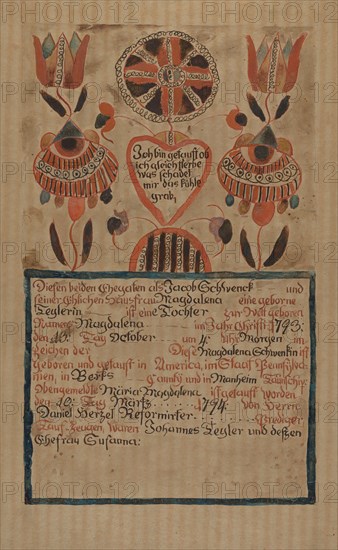 Ich bin getauft ob
ich gleich sterbe
was schadet
mir das kühle
grab,
Diesen beiden Ehegatten als Jacob Schwenck und
seiner Ehlichen Haus-frau Magdalena eine geborne
Zeglerin ist eine Tochter zur Welt geboren
Namens Magdalena im Jahr Christi 1793:
den 10: Tag October um 4: Uhr Morgen im
zeichen der Diese Magdalena Schwenkin ist
geboren und getauft in America, im Staat
nien, in Berks Caunty und in Manheim
Obengemeldte Maria Magdalena ist getauft worden
den 20: Tag Märtz 1794: von Herrn
Daniel Herzel Reformirter Prediger
Tauf-Zeugen Waren Johannes Zegler und deßen
Ehefrau Susanna: